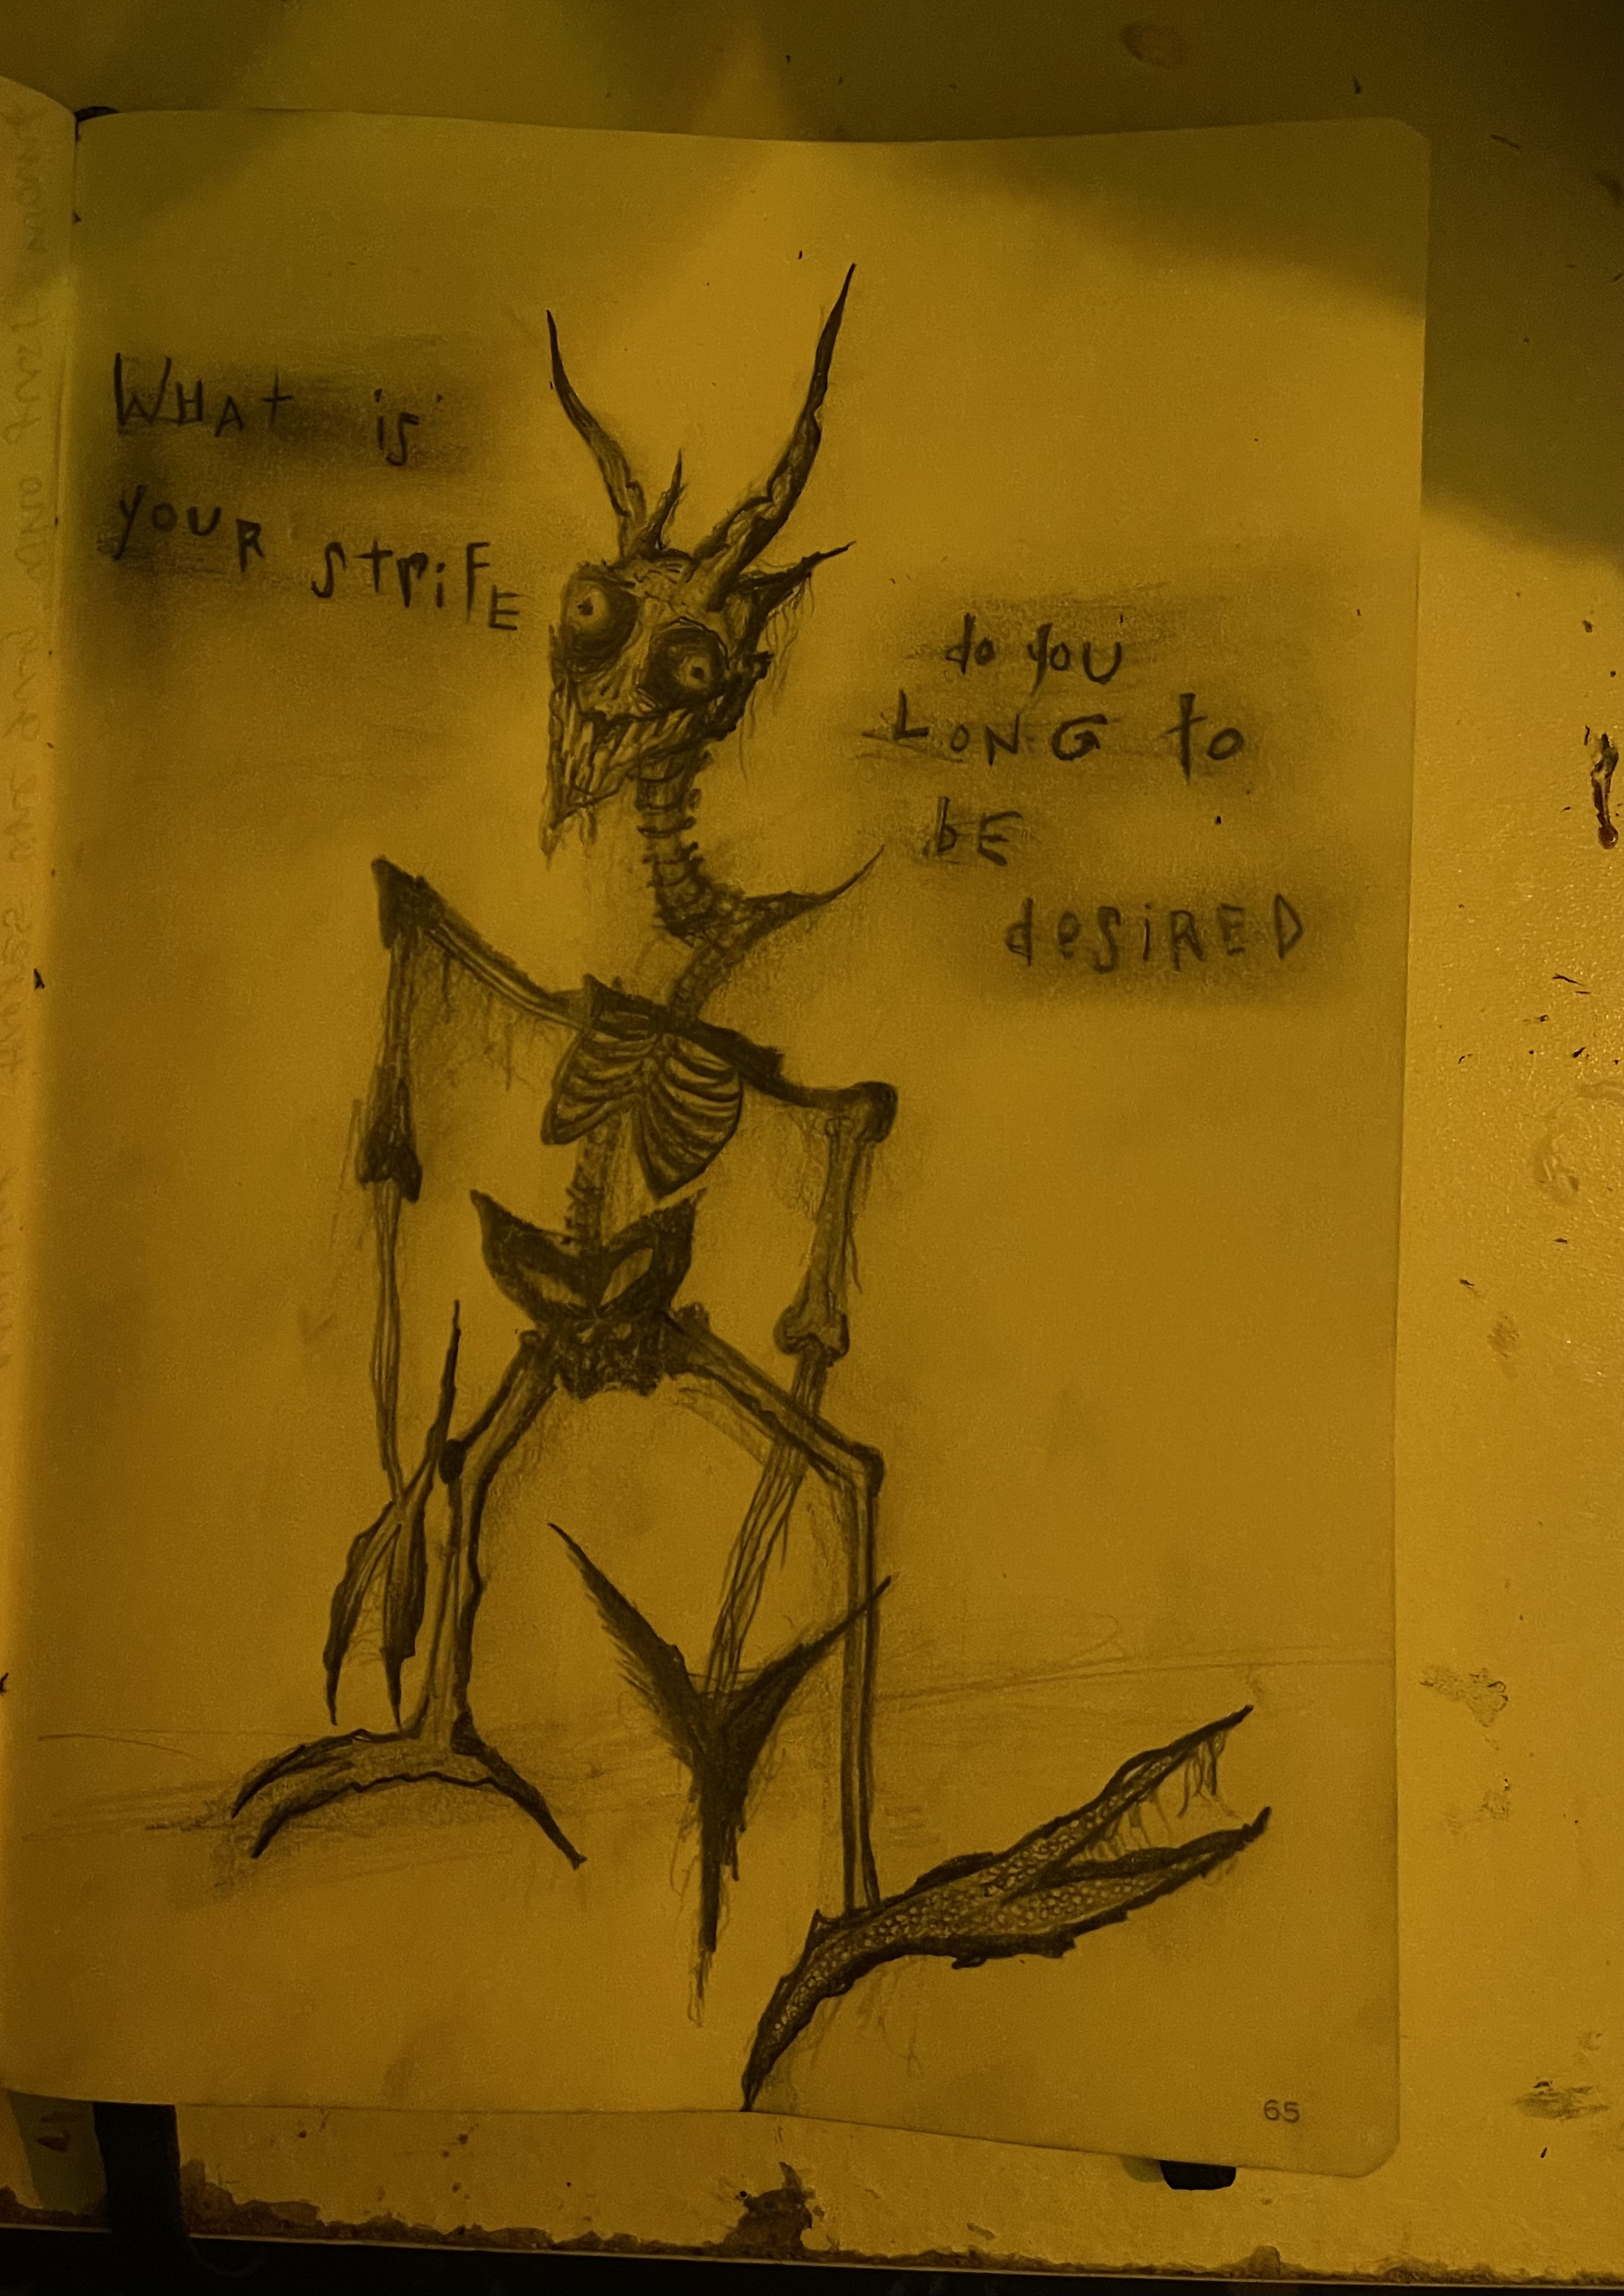 WHAt is
yOUR StRiFE
do yOU
LONG to
bE
deSiRED
65